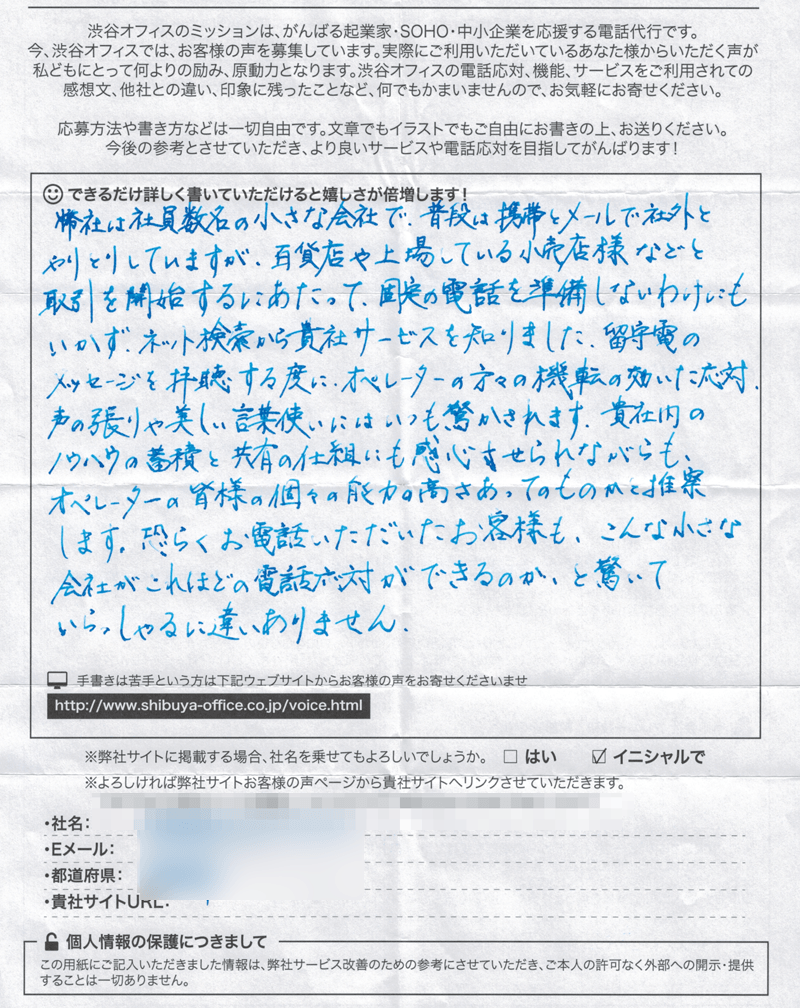 渋谷オフィスのミッションは、がんばる起業家・SOHO・中小企業を応援する電話代行です。
今、渋谷オフィスでは、お客様の声を募集しています。実際にご利用いただいているあなた様からいただく声が
私どもにとって何よりの励み、原動力となります。渋谷オフィスの電話応対、機能、サービスをご利用されての
感想文、他社との違い、印象に残ったことなど、何でもかまいませんので、お気軽にお寄せください。
応募方法や書き方などは一切自由です。文章でもイラストでもご自由にお書きの上、お送りください。
今後の参考とさせていただき、より良いサービスや電話応対を目指してがんばります！
できるだけ詳しく書いていただけると嬉しさが倍増します！
弊社は社員数名の小さな会社で、普段は携帯とメールで社外と
やりとりしていますが、百貨店や上場している小売店様などと
取引を開始するにあたって、固定の電話を準備しないわけにも
いかず、ネット検索から貴社サービスを知りました。留守電の
メッセージを拝聴する度に、オペレーターの方々の機転の効いた応対、
声の張りや美しい言葉使いにはいつも驚かされます。貴社内の
ノウハウの蓄積と共有の仕組にも感心させられながらも、
オペレーターの皆様の個々の能力の高さあってのものかと推察
します。恐らくお電話いただいたお客様も、こんな小さな
会社がこれほどの電話応対ができるのか、と驚いて
いらっしゃるに違いありません。
手書きは苦手という方は下記ウェブサイトからお客様の声をお寄せくださいませ
http://www.shibuya-office.co.jp/voice.html
※弊社サイトに掲載する場合、社名を乗せてもよろしいでしょうか。 □ はい ☑ イニシャルで
※よろしければ弊社サイトお客様の声ページから貴社サイトへリンクさせていただきます。
・社名：
・Eメール：
・都道府県：
・貴社サイトURL：
個人情報の保護につきまして
この用紙にご記入いただきました情報は、弊社サービス改善のための参考にさせていただき、ご本人の許可なく外部への開示・提供
することは一切ありません。